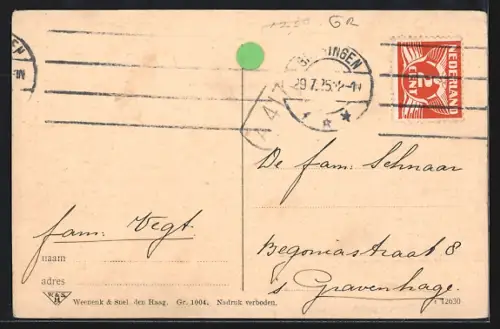 GR
NINGEN
29.7.25.
NEDERLAND
2
CENT
De fam: Schnaar
fam: Vegt.
Begoniastraat 8
naam
adres
's Gravenhage.
Weenenk & Snel, den Haag. Gr. 1004. Nadruk verboden.
12630